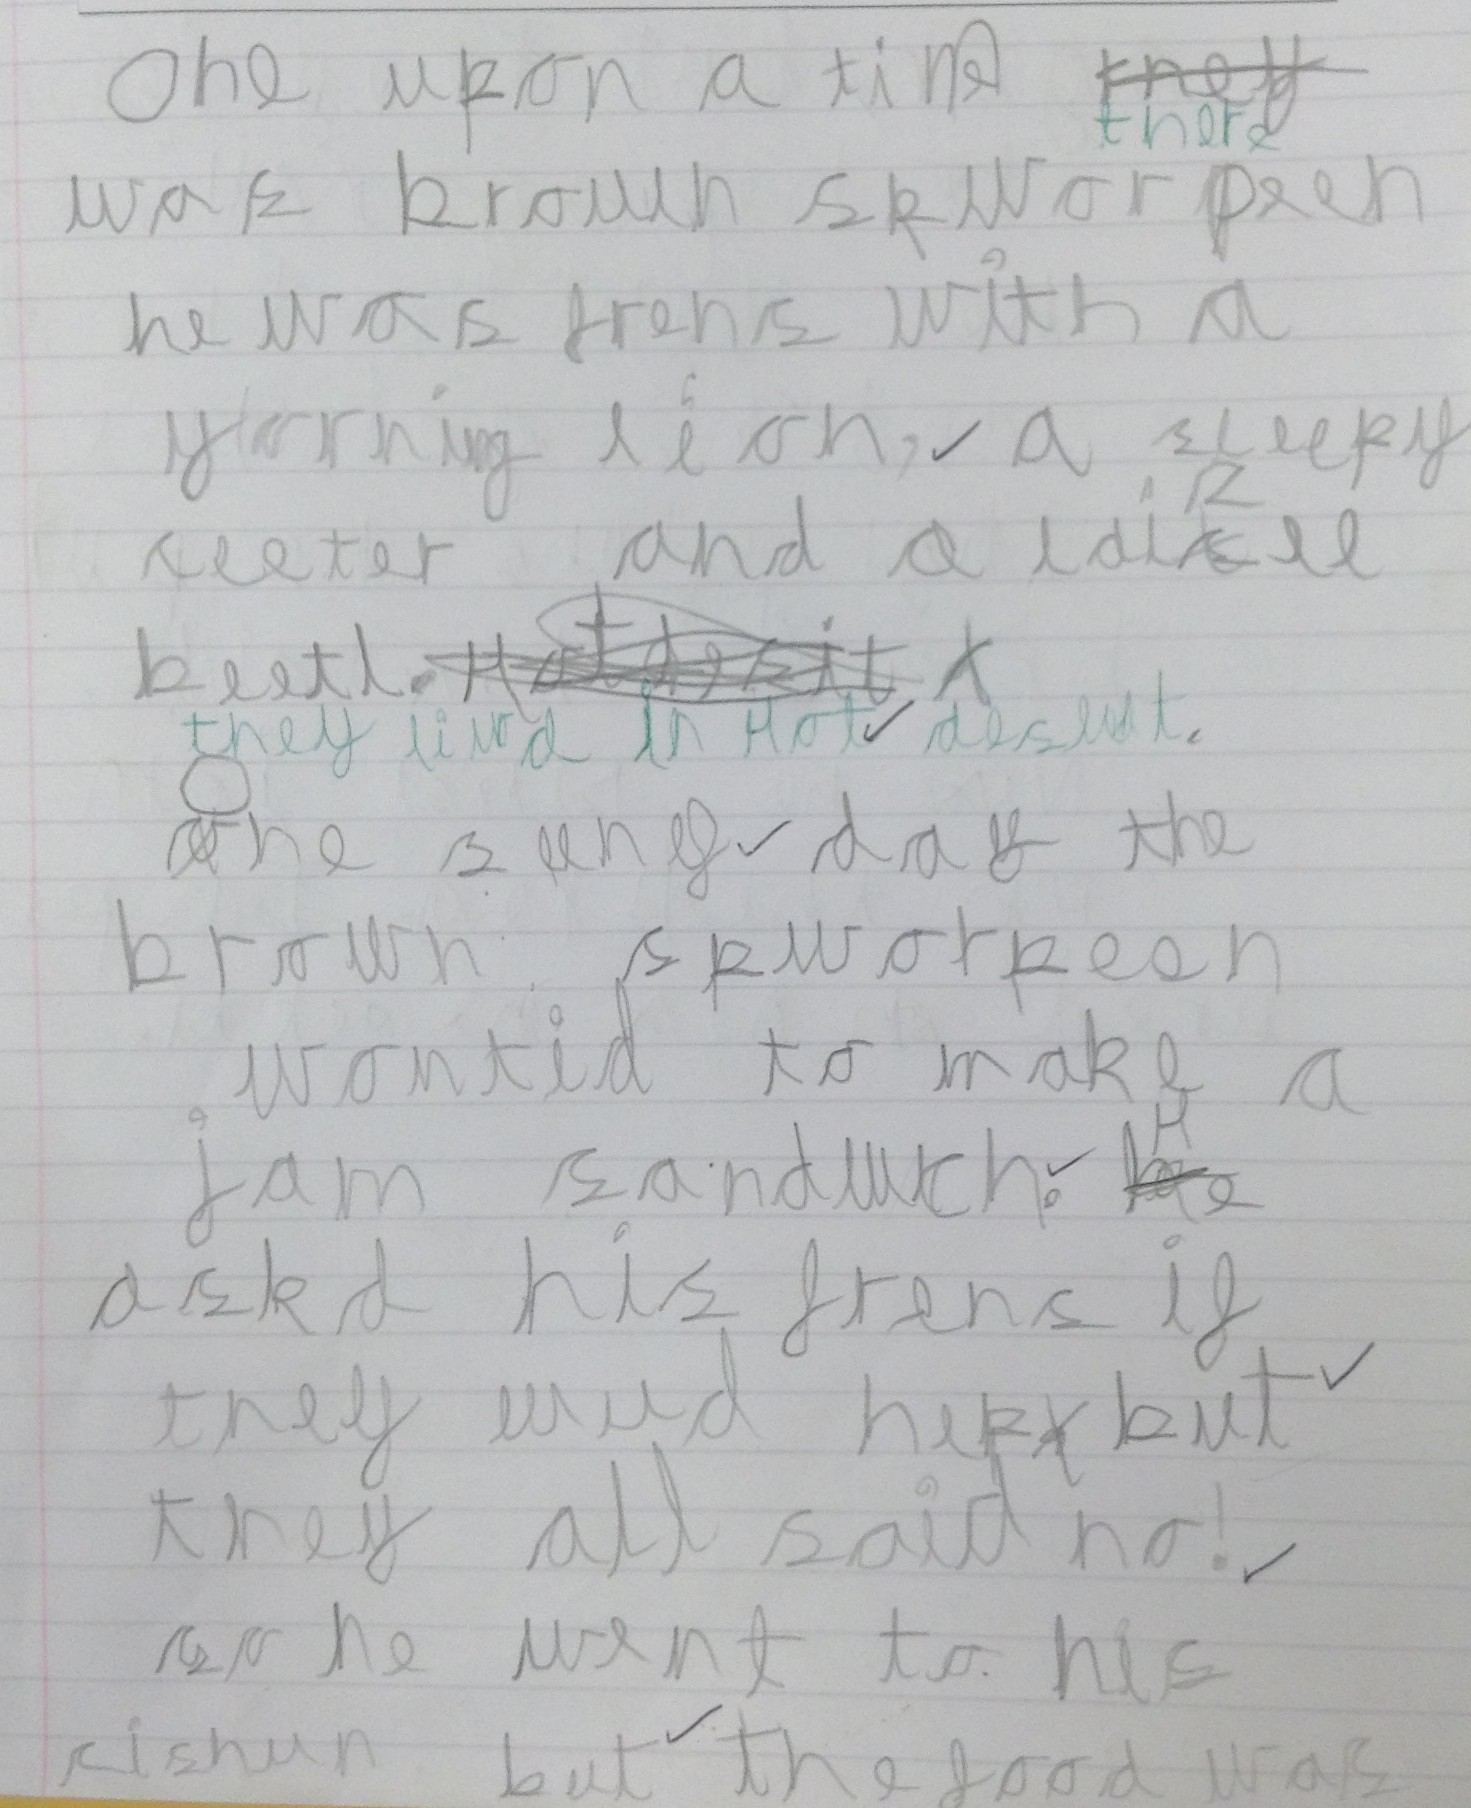 One upon a time ~~they~~
there
was brown skworpeen
he was frens with a
yorning lion, a sleepy
ceeter and a
beetl. ~~Hot desit~~
they livd in Hot desut.
One suney day the
brown skworpeen
wontid to make a
jam sandwich. He
askd his frens if
they wud help but
they all said no!
so he went to his
cishun but the food was